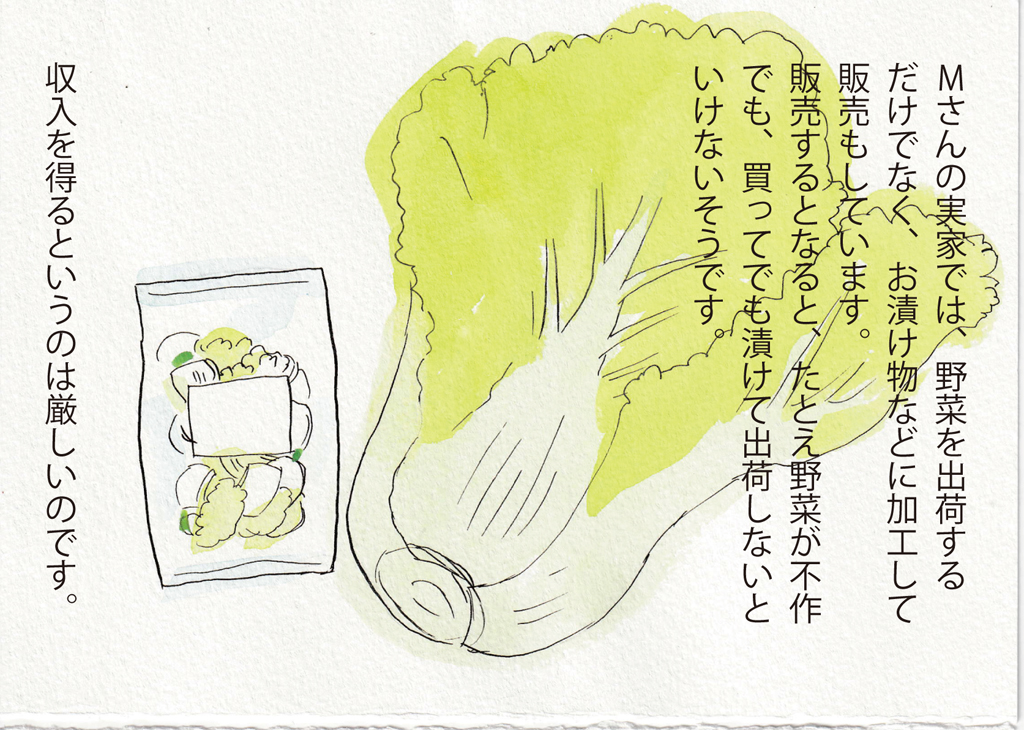 Mさんの実家では、野菜を出荷する
だけでなく、お漬け物などに加工して
販売もしています。
販売するとなると、たとえ野菜が不作
でも、買ってでも漬けて出荷しないと
いけないそうです。
収入を得るというのは厳しいのです。